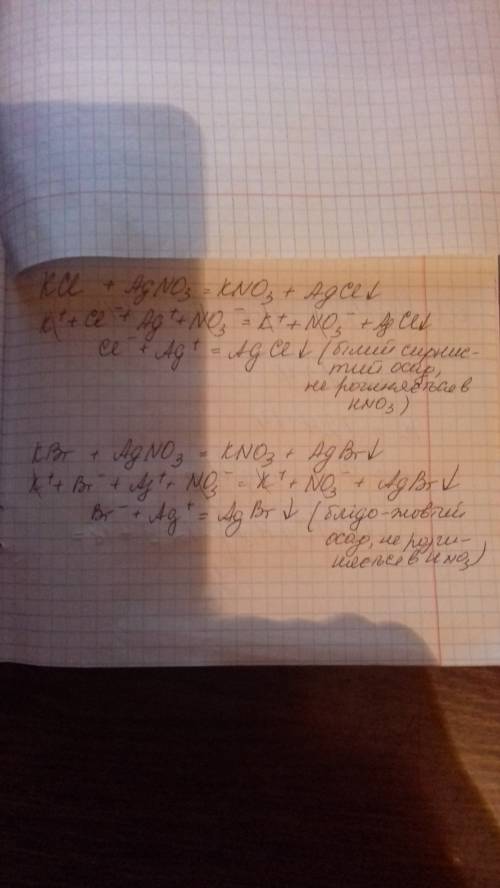 KCl + AgNO₃ = KNO₃ + AgCl↓
K⁺ + Cl⁻ + Ag⁺ + NO₃⁻ = K⁺ + NO₃⁻ + AgCl↓
Cl⁻ + Ag⁺ = AgCl↓ (білий сирнис-
тий осад,
не розчиняється в
HNO₃)
KBr + AgNO₃ = KNO₃ + AgBr↓
K⁺ + Br⁻ + Ag⁺ + NO₃⁻ = K⁺ + NO₃⁻ + AgBr↓
Br⁻ + Ag⁺ = AgBr↓ (блідо-жовтий
осад, не розчи-
няється в HNO₃)